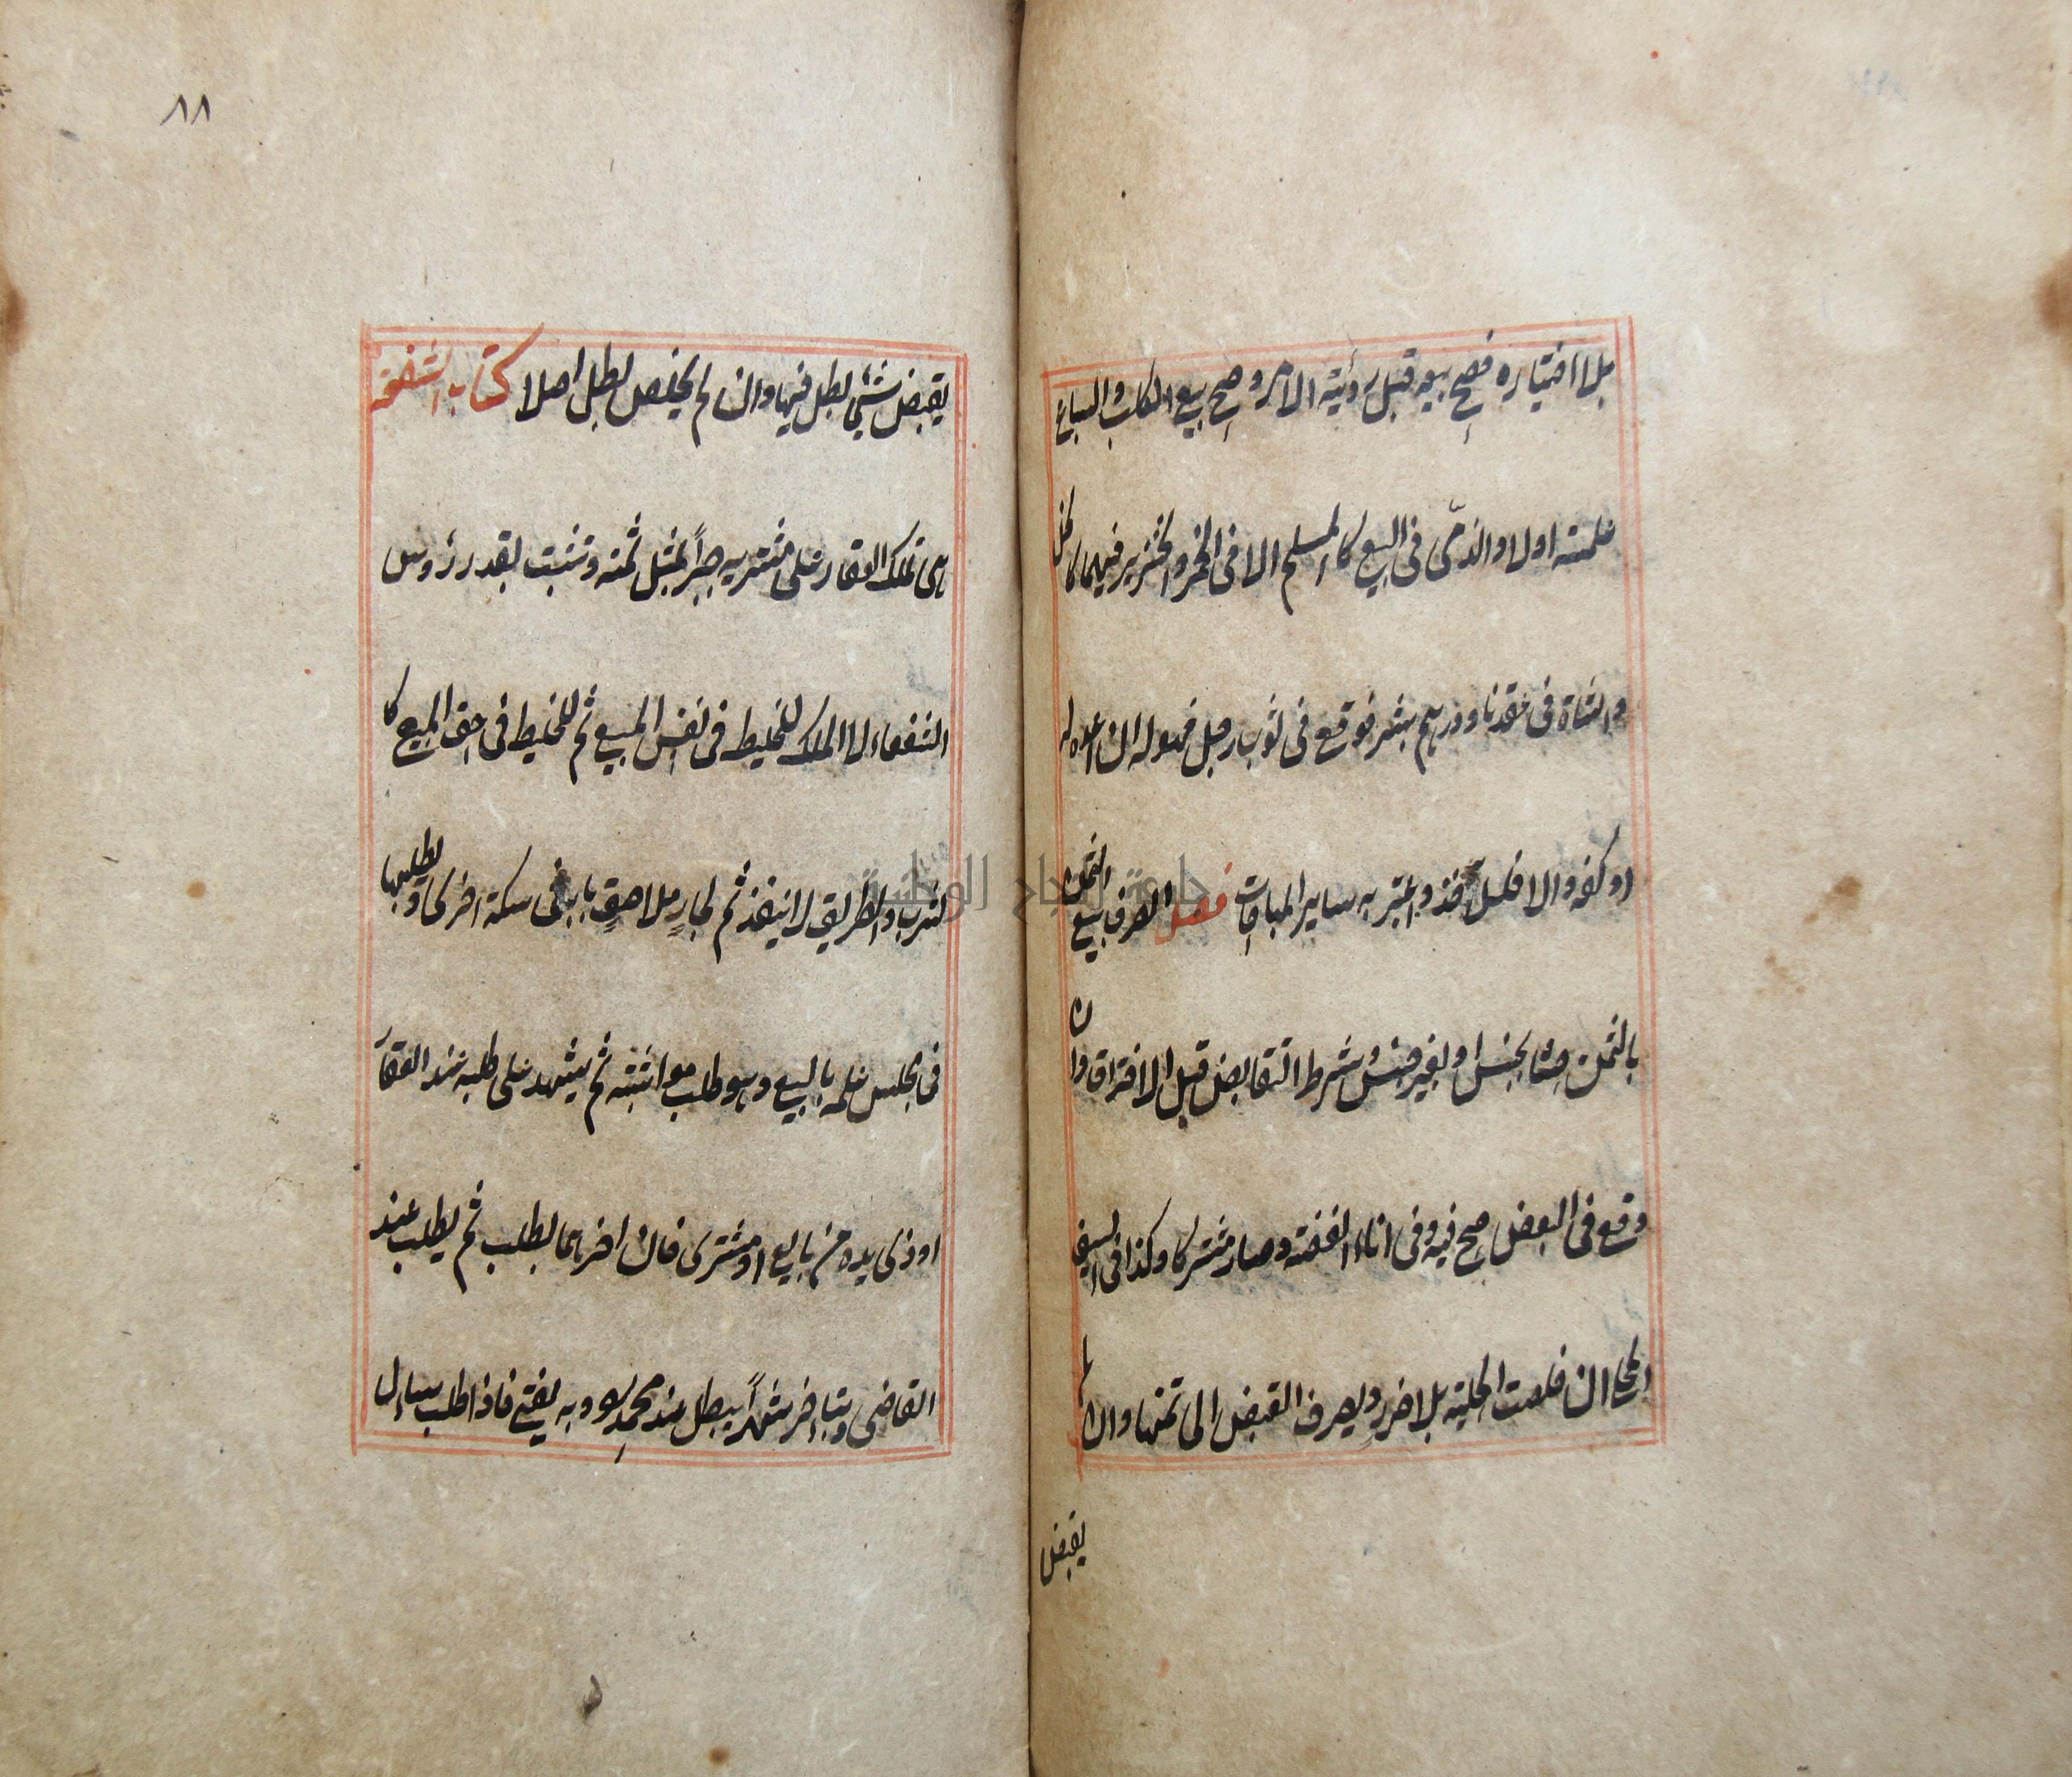 بلا اختياره فصح بيعه قبل رؤية الامر وصح بيع الكلب والسباع
علمته اولا والذمى فى البيع كالمسلم الا فى الخمر والخنزير فهما كالخل
والشاة فى عقدنا ودرهم نثر فوقع فى ثوب رجل فهو له ان اعده له
او كفه والا فلل اخذ واعتبر به ساير المباحات فصل الصرف بيع الثمن
بالثمن جنسا بجنس او بغير جنس وشرط التقابض قبل الافتراق وان
وقع فى البعض صح فيه وفى اناء الفضة وصار مشتركا وكذا فى السيف
المحلى ان خلصت الحلية بلا ضرر ويصرف القبض الى ثمنها وان لم
يقبض
٨٨
يقبض شئ بطل فيها وان لم يخلص بطل اصلا كتاب الشفعة
هى تملك العقار على مشتريه جبرا بمثل ثمنه وتثبت بقدر رؤس
الشفعاء لا الملك للخليط فى نفس المبيع ثم للخليط فى حق المبيع كا
لشرب والطريق لا ينفذ ثم لجار ملاصق بابه فى سكة اخرى ويطلبها
فى مجلس علمه بالبيع وهو طلب مواثبته ثم يشهد على طلبه عند العقار
او ذى يده من بايع او مشترى فان اخرهما بطلب ثم يطلب عند
القاضى وبتاخر شهرا يبطل عند محمد وبه يفتى فاذا طلب سال
جامعة النجاح الوطنية